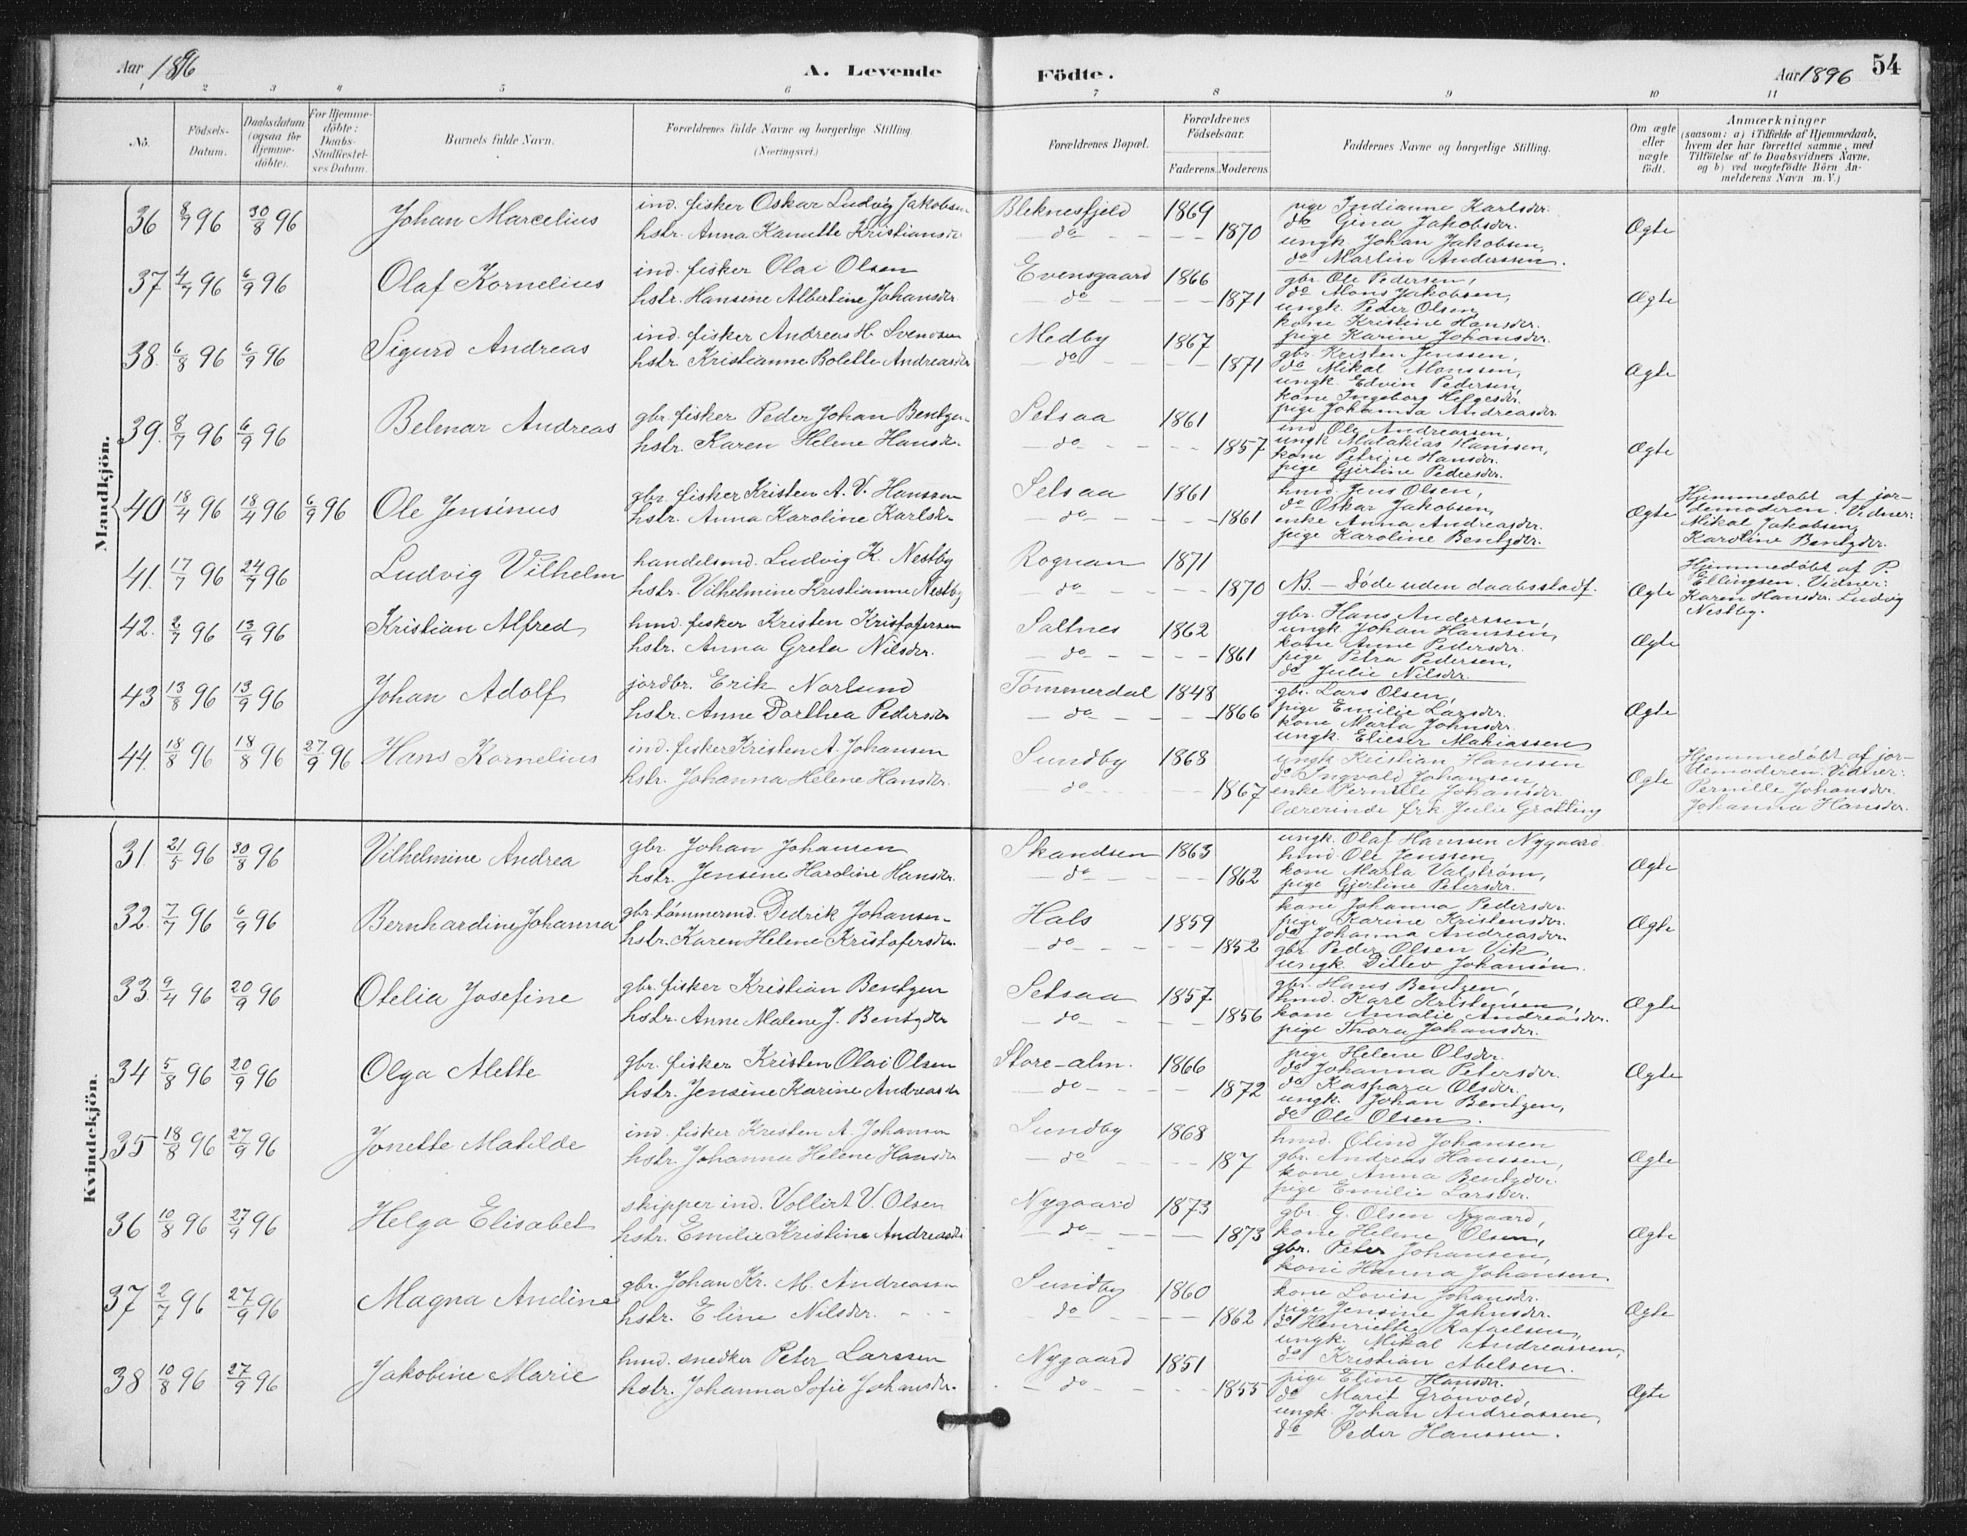 Aar 1896
A. Levende
Födte.
Aar 1896
54
1 2 3 4 5 6 7 8 9 10 11
No.
Födsels-
Datum.
Daabsdatum
(ogsaa for
Hjemme-
döbte).
For Hjemme-
döbte:
Daabs-
Stadfæstel-
ses Datum.
Barnets fulde Navn.
Forældrenes fulde Navne og borgerlige Stilling.
(Næringsvei.)
Forældrenes Bopæl.
Forældrenes
Födselsaar.
Faderens. Moderens.
Faddernes Navne og borgerlige Stilling.
Om ægte
eller
uægte
födt.
Anmærkninger
(saasom: a) i Tilfælde af Hjemmedaab,
hvem der har forrettet samme, med
Tilföielse af to Daabsvidners Navne,
og b) ved uægtefödte Börn An-
melderens Navn m. V.)
Mandkjön.
36 8/7 96 30/8 96 Johan Marcelius
ind. fisker Oskar Ludvig Jakobsen
hstr. Anna Kanutte Kristiansdr
Bleknesfjeld 1869
do 1870
pige Indianne Karlsdr.
do Gina Jakobsdr.
ungk. Johan Jakobsen,
do Martin Anderssen.
Ægte
37 4/7 96 6/9 96 Olaf Kornelius
ind. fisker Olai Olsen
hstr. Hansine Albertine Johansdr
Evensgaard 1866
do 1871
gbr. Ole Pedersen,
do Mons Jakobsen,
ungk. Peder Olsen
kone Kristine Hansdr.
pige Karine Johansdr.
Ægte
38. 6/8 96 6/9 96 Sigurd Andreas
ind. fisker Andreas H. Svendsen
hstr. Kristianne Bolette Andreasdr
Medby 1867
do 1871
gbr. Kristen Jenssen,
do Mikal Monssen,
ungk. Edvin Pedersen,
kone Ingeborg Helgesdr.
pige Johanna Andreasdr.
Ægte
39. 8/7 96 6/9 96 Belmar Andreas
gbr. fisker Peder Johan Bentzen
hstr. Karen Helene Hansdr.
Setsaa 1861
do 1857
ind. Ole Andreassen,
ungk. Malakias Hanssen,
kone Petrine Hansdr.
pige Gjertine Pedersdr.
Ægte
40 18/4 96 18/4 96 6/9 96 Ole Jensinus
gbr. fisker Kristen A. V. Hanssen
hstr. Anna Karoline Karlsdr.
Setsaa 1861
do 1861
hmd. Jens Olsen,
do Oskar Jakobsen,
enke Anna Andreasdr.
pige Karoline Bentzdr.
Ægte
Hjemmedöbt af jor-
demoderen. Vidner:
Mikal Jakobsen,
Karoline Bentzdr.
41. 17/7 96 24/7 96 Ludvig Vilhelm
handelsmd. Ludvig K. Nestby
hstr. Vilhelmine Kristianne Nestby
Rognan 1871
do 1870
NB. – Döde uden daabsstadf.
Ægte
Hjemmedöbt af P.
Ellingsen. Vidner:
Karen Hansdr. Ludvig
Nestby.
42. 2/7 96 13/9 96 Kristian Alfred
hmd. fisker Kristen Kristofersen
hstr. Anna Greta Nilsdr.
Saltnes 1862
do 1861
gbr. Hans Anderssen,
ungk. Johan Hanssen,
kone Anne Pedersdr.
pige Petra Pedersen,
do Julie Nilsdr.
Ægte
43 13/8 96 13/9 96 Johan Adolf
jordbr. Erik Norlund
hstr. Anne Dorthea Pedersdr
Tömmerdal 1848
do 1866
gbr. Lars Olsen,
pige Emilie Larsdr.
kone Marta Johnsdr.
ungk. Elieser Mathiassen
Ægte
44. 18/8 96 18/8 96 27/9 96 Hans Kornelius
ind. fisker Kristen A. Johansen
hstr. Johanna Helene Hansdr.
Sundby 1868
do 1867
ungk Kristian Hanssen
do Ingvald Johansen,
enke Pernille Johansdr
lærerinde frk. Julie Grötting
Ægte
Hjemmedöbt af jor-
demoderen. Vidner:
Pernille Johansdr.
Johanna Hansdr.
Kvindekjön.
31. 21/5 96 30/8 96 Vilhelmine Andrea
gbr. Johan Johansen
hstr. Jensine Haroline Hansdr.
Skandsen 1863
do 1862
ungk. Olaf Hanssen Nygaard
hmd. Ole Jenssen,
kone Marta Valström,
pige Gjertine Petersdr.
Ægte
32. 7/7 96 6/9 96 Bernhardine Johanna
gbr. tömmermd. Dedrik Johansen
hstr. Karen Helene Kristofersdr.
Hals 1859
do 1852
kone Johanna Pedersdr
pige Karine Kristensdr.
do Johanna Andreasdr.
gbr Peder Olsen Vik,
ungk. Ditlev Johansen.
Ægte
33. 9/4 96 20/9 96 Otelia Josefine
gbr. fisker Kristian Bentzen
hstr. Anne Malene J. Bentzdr
Setsaa 1857
do 1856
gbr. Hans Bentzen,
hmd. Karl Kristensen,
kone Amalie Andreasdr.
pige Thora Johansdr.
Ægte
34 5/8 96 20/9 96 Olga Alette
gbr. fisker Kristen Olai Olsen
hstr. Jensine Karine Andreasdr
Store-alm. 1866
do 1872
pige Helene Olsdr.
do Johanna Petersdr.
do Kaspara Olsdr.
ungk. Johan Bentzen,
do Ole Olsen.
Ægte
35 18/8 96 27/9 96 Jonette Matilde
ind. fisker Kristen A. Johansen
hstr. Johanna Helene Hansdr
Sundby 1868
do 187
hmd. Olind Johansen
gbr. Andreas Hanssen,
kone Anna Bentzdr.
pige Emilie Larsdr.
Ægte
36 10/8 96 27/9 96 Helga Elisabet
skipper ind. Vollert V. Olsen
hstr. Emilie Kristine Andreasdr
Nygaard 1873
do 1873
gbr. G. Olsen Nygaard,
kone Helene Olsen,
gbr. Peter Johansen,
kone Hanna Johansen.
Ægte
37 2/7 96 27/9 96 Magna Andine
gbr. Johan Kr. M. Andreassen
hstr. Eline Nilsdr.
Sundby 1860
do 1862
kone Lovise Johansdr.
pige Jensine Jahnsdr.
do Henriette Rafaelsen,
ungk. Mikal Andreassen,
do Kristian Abelsen.
Ægte
38 10/8 96 27/9 96 Jakobine Marie
hmd. snedker Peter Larssen
hstr. Johanna Sofie Johansdr.
Nygaard 1851
do 1855
pige Eline Hansdr.
do Marit Grönvold,
ungk. Johan Andreassen,
do Peder Hanssen.
Ægte